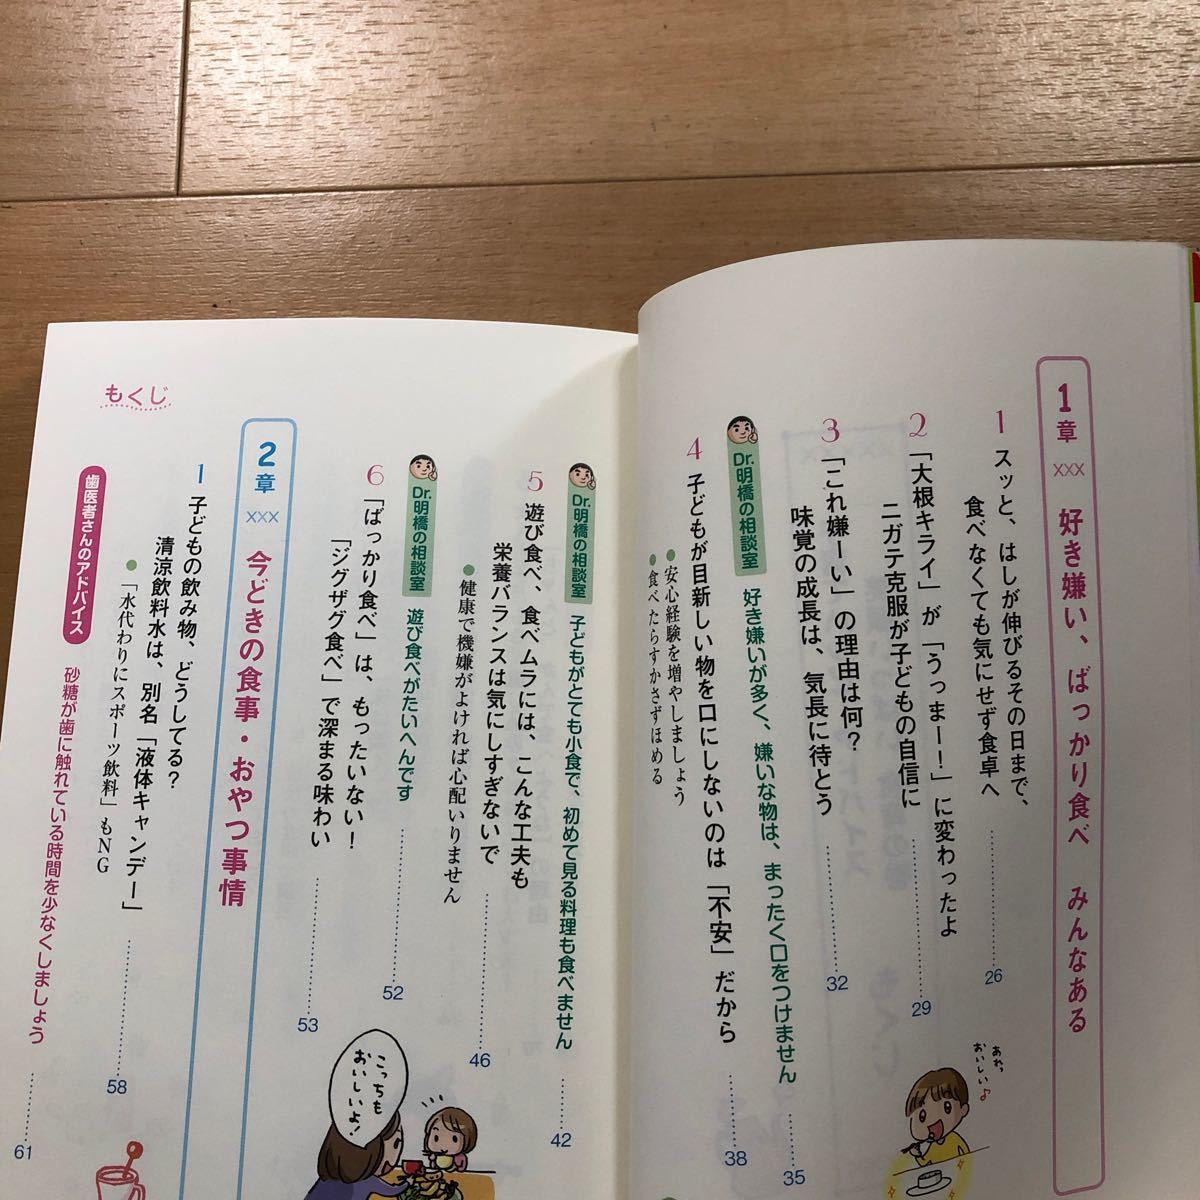 1章 ××× 好き嫌い、ばっかり食べ みんなある
1 スッと、はしが伸びるその日まで、
食べなくても気にせず食卓へ
26
2 「大根キライ」が「うっまー！」に変わったよ
ニガテ克服が子どもの自信に
29
3 「これ嫌ーい」の理由は何？
味覚の成長は、気長に待とう
32
Dr.明橋の相談室 好き嫌いが多く、嫌いな物は、まったく口をつけません
35
4 子どもが目新しい物を口にしないのは「不安」だから
38
●安心経験を増やしましょう
●食べたらすかさずほめる
あれっ
おいしい♪
もくじ
Dr.明橋の相談室 子どもがとても小食で、初めて見る料理も食べません
42
5 遊び食べ、食べムラには、こんな工夫も
栄養バランスは気にしすぎないで
46
●健康で機嫌がよければ心配いりません
Dr.明橋の相談室 遊び食べがたいへんです
52
6 「ばっかり食べ」は、もったいない！
「ジグザグ食べ」で深まる味わい
53
2章 ××× 今どきの食事・おやつ事情
1 子どもの飲み物、どうしてる？
清涼飲料水は、別名「液体キャンデー」
58
●「水代わりにスポーツ飲料」もNG
歯医者さんのアドバイス 砂糖が歯に触れている時間を少なくしましょう
61
こっちも
おいしいよ！